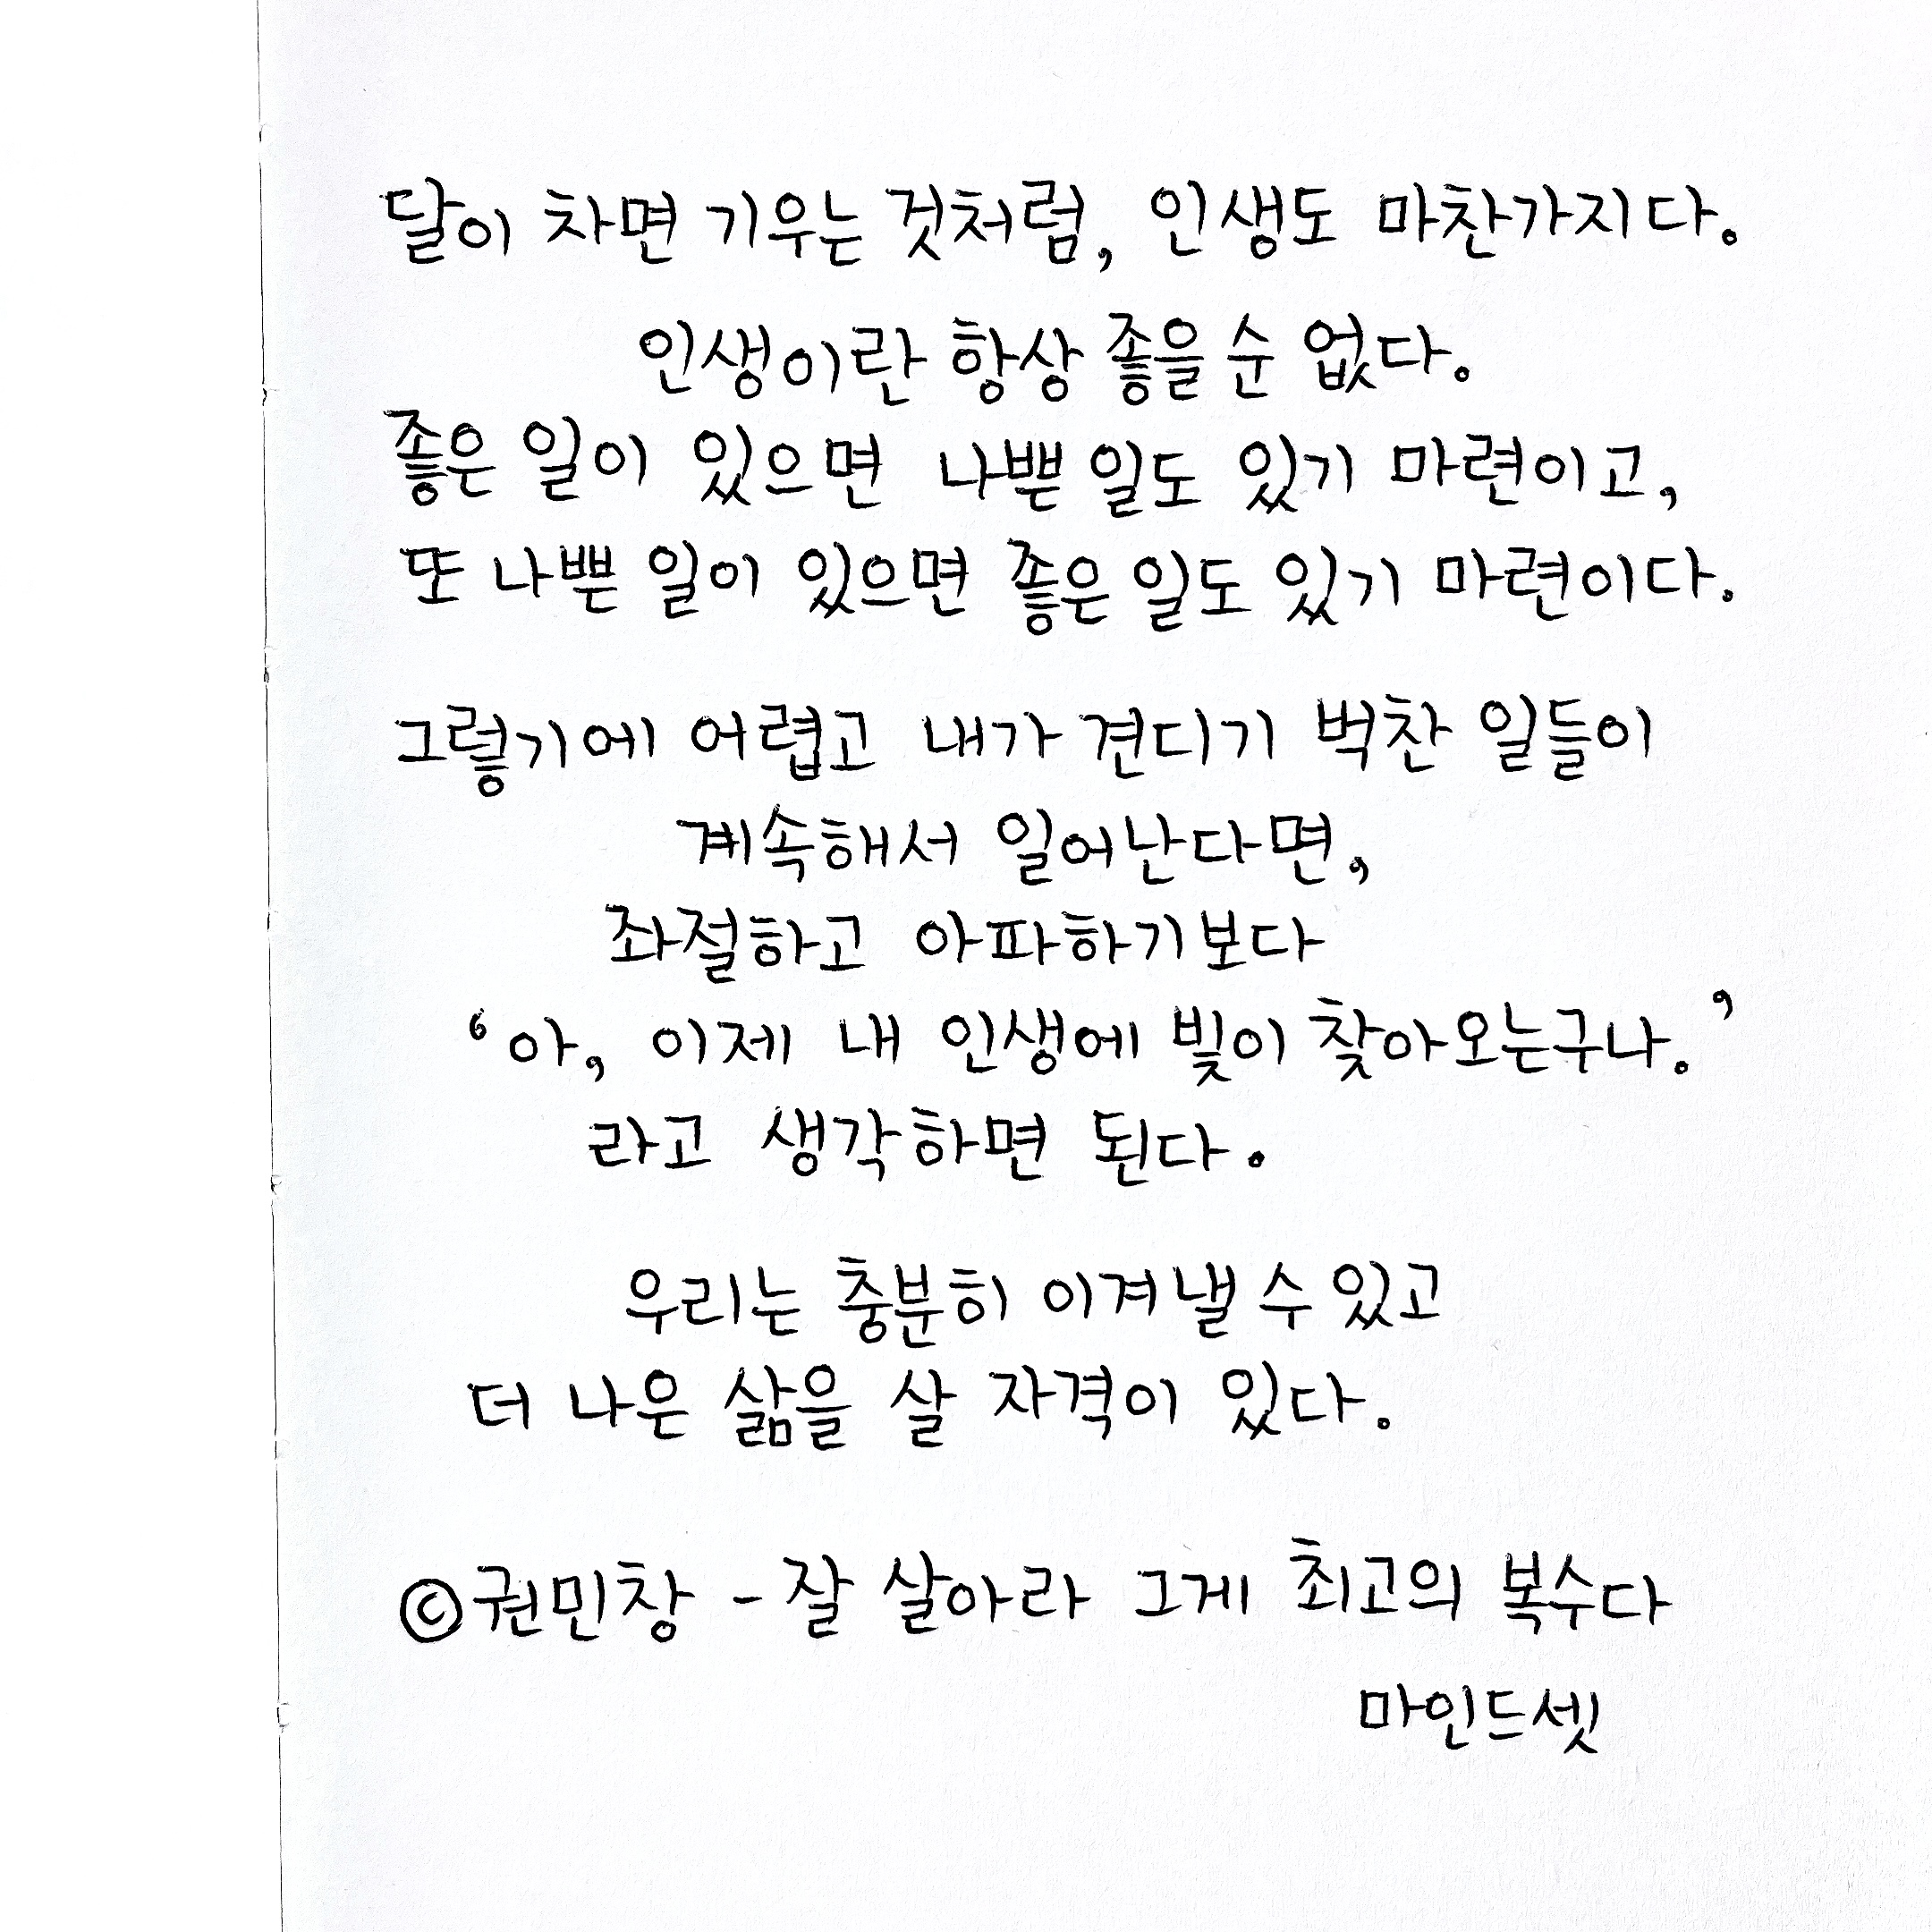 달이 차면 기우는 것처럼, 인생도 마찬가지다.
인생이란 항상 좋을 순 없다.
좋은 일이 있으면 나쁜 일도 있기 마련이고,
또 나쁜 일이 있으면 좋은 일도 있기 마련이다.
그렇기에 어렵고 내가 견디기 벅찬 일들이
계속해서 일어난다면,
좌절하고 아파하기보다
‘아, 이제 내 인생에 빛이 찾아오는구나.’
라고 생각하면 된다.
우리는 충분히 이겨낼 수 있고
더 나은 삶을 살 자격이 있다.
©권민창 - 잘 살아라 그게 최고의 복수다
마인드셋